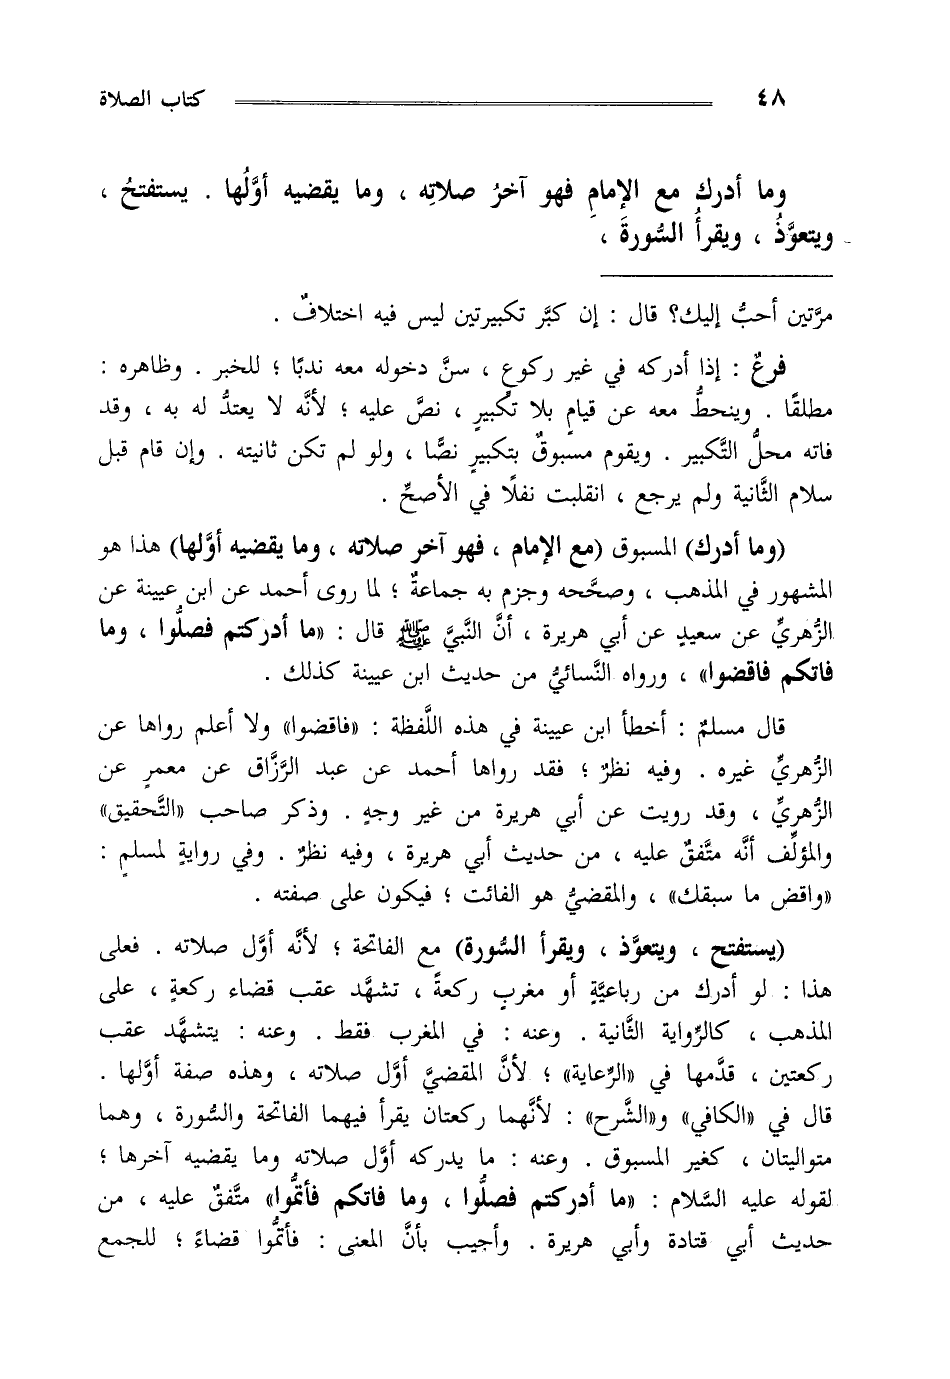 ٤٨ كتاب الصلاة
وما أدرك مع الإمامِ فهو آخرُ صلاتِه ، وما يقضيه أوَّلُها . يستفتحُ ،
ويتعوَّذُ ، ويقرأُ السُّورةَ ،
مرَّتين أحبُّ إليك؟ قال : إن كبَّر تكبيرتين ليس فيه اختلافٌ .
فرعٌ : إذا أدركه في غير ركوعٍ ، سنَّ دخوله معه ندبًا ؛ للخبر . وظاهره :
مطلقًا . وينحطُّ معه عن قيامٍ بلا تكبيرٍ ، نصَّ عليه ؛ لأنَّه لا يعتدُّ له به ، وقد
فاته محلُّ التَّكبير . ويقوم مسبوقٌ بتكبيرٍ نصًّا ، ولو لم تكن ثانيته . وإن قام قبل
سلام الثَّانية ولم يرجع ، انقلبت نفلًا في الأصحِّ .
(وما أدرك) المسبوق (مع الإمام ، فهو آخر صلاته ، وما يقضيه أوَّلها) هذا هو
المشهور في المذهب ، وصحَّحه وجزم به جماعةٌ ؛ لما روى أحمد عن ابن عيينة عن
الزُّهريِّ عن سعيدٍ عن أبي هريرة ، أنَّ النَّبيَّ ﷺ قال : «ما أدركتم فصلُّوا ، وما
فاتكم فاقضوا» ، ورواه النَّسائيُّ من حديث ابن عيينة كذلك .
قال مسلمٌ : أخطأ ابن عيينة في هذه اللَّفظة : «فاقضوا» ولا أعلم رواها عن
الزُّهريِّ غيره . وفيه نظرٌ ؛ فقد رواها أحمد عن عبد الرَّزَّاق عن معمرٍ عن
الزُّهريِّ ، وقد رويت عن أبي هريرة من غير وجهٍ . وذكر صاحب «التَّحقيق»
والمؤلِّف أنَّه متَّفقٌ عليه ، من حديث أبي هريرة ، وفيه نظرٌ . وفي روايةٍ لمسلمٍ :
«واقض ما سبقك» ، والمقضيُّ هو الفائت ؛ فيكون على صفته .
(يستفتح ، ويتعوَّذ ، ويقرأ السُّورة) مع الفاتحة ؛ لأنَّه أوَّل صلاته . فعلى
هذا : لو أدرك من رباعيَّةٍ أو مغربٍ ركعةً ، تشهَّد عقب قضاء ركعةٍ ، على
المذهب ، كالرِّواية الثَّانية . وعنه : في المغرب فقط . وعنه : يتشهَّد عقب
ركعتين ، قدَّمها في «الرِّعاية» ؛ لأنَّ المقضيَّ أوَّل صلاته ، وهذه صفة أوَّلها .
قال في «الكافي» و«الشَّرح» : لأنَّهما ركعتان يقرأ فيهما الفاتحة والسُّورة ، وهما
متواليتان ، كغير المسبوق . وعنه : ما يدركه أوَّل صلاته وما يقضيه آخرها ؛
لقوله عليه السَّلام : «ما أدركتم فصلُّوا ، وما فاتكم فأتمُّوا» متَّفقٌ عليه ، من
حديث أبي قتادة وأبي هريرة . وأجيب بأنَّ المعنى : فأتمُّوا قضاءً ؛ للجمع